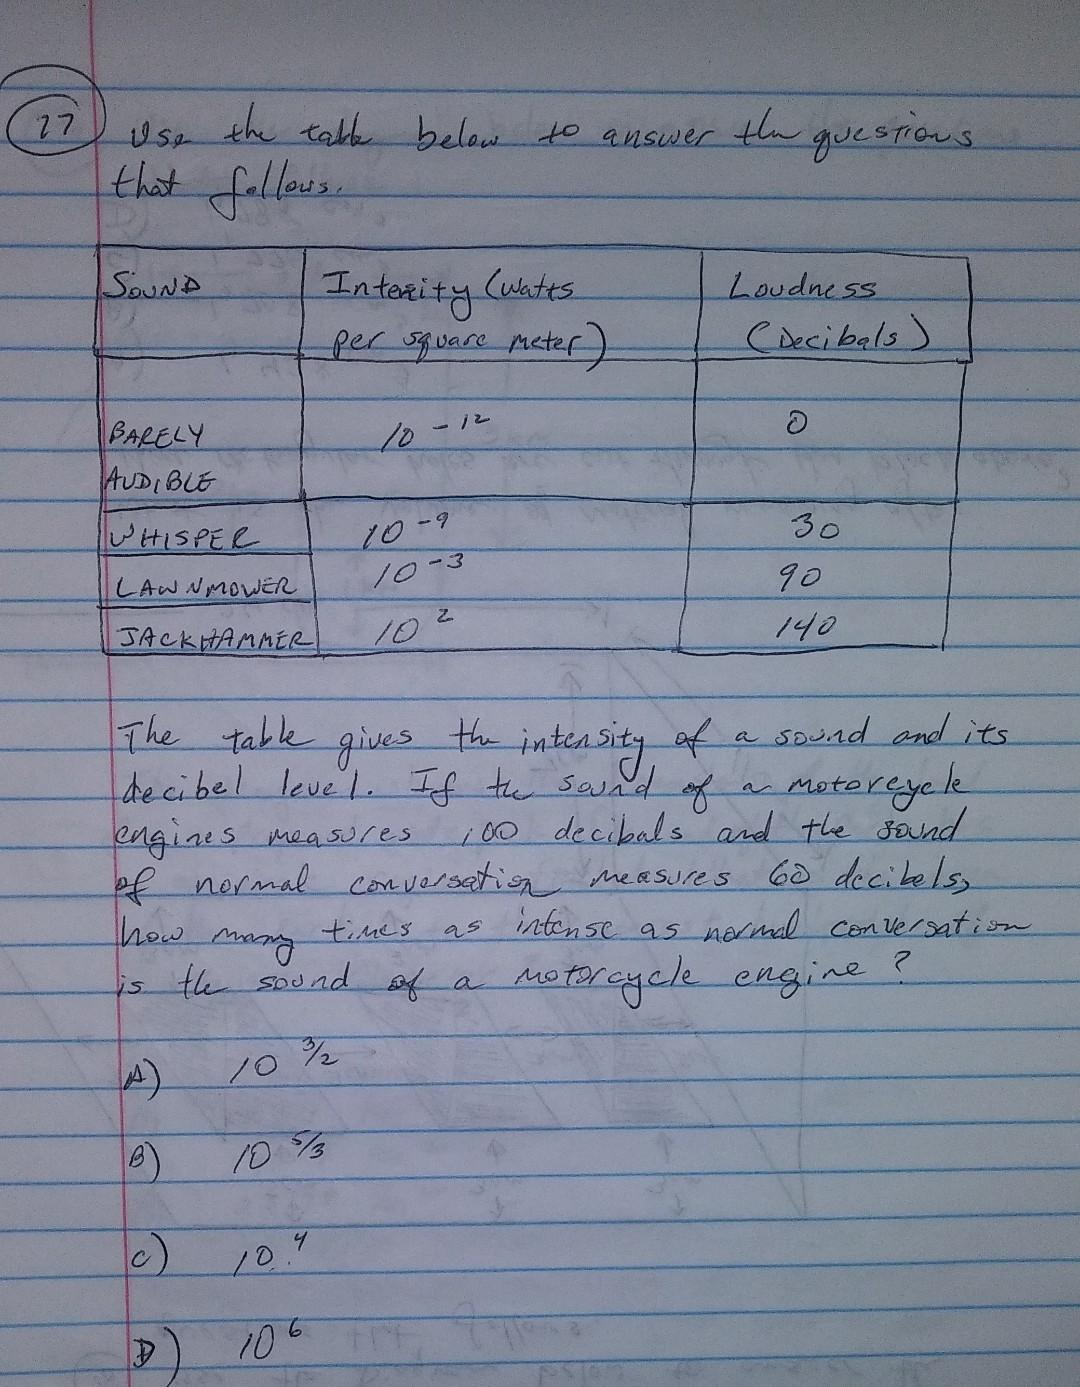 27
Use the table below to answer the questions
that follows.
SOUND Intenzity (watts Loudness
per square meter) (Decibals)
BARELY 10^-12 0
AUDIBLE
WHISPER 10^-9 30
LAWNMOWER 10^-3 90
JACKHAMMER 10^2 140
The table gives the intensity of a sound and its
decibel level. If the sound of a motorcycle
engines measures 100 decibals and the sound
of normal conversation measures 60 decibels,
how many times as intense as normal conversation
is the sound of a motorcycle engine?
A) 10^3/2
B) 10^5/3
C) 10^4
D) 10^6